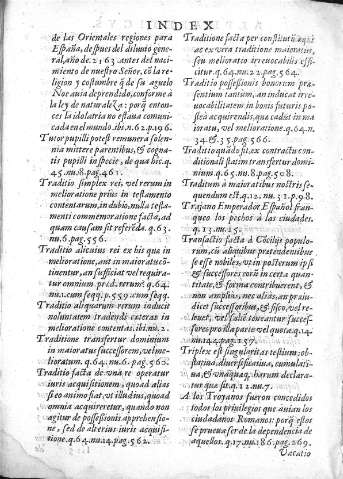 INDEX
de las Orientales regiones para
España, despues del diluuio gene-
ral, año de .2163. antes del naci-
miento de nuestro Señor, cõ la re-
ligion y costumbre q̃ de su aguelo
Noe auia deprendido, conforme à
la ley de naturaleza: porq̃ enton-
ces la idolatria no estaua comuni
cada en el mundo. ibi. n. 62. p. 196.
Tutor pupilli potest remunera solen-
nia mittere parentibus, & cogna-
tis pupilli in specie, de qua hic. q.
45. nu. 8. pag. 461.
Traditio simplex rei, vel rerum in
melioratione prius in testamento
contentarum, in dubio, nulla testa-
menti commemoratione facta, ad
quam causam sit referẽda. q. 63.
nu. 6. pag. 556.
Traditio alicuius rei ex his que in
melioratione, aut in maioratu cõ-
tinentur, an sufficiat vel requira-
tur omnium prædi. rerum? q. 64.
nu. 1. cum seqq. p. 559. cum seqq.
Traditio aliquarum rerum inducit
noluntatem tradendi ceteras in
melioratione contentas. ibi. nu. 2.
Traditione transfertur dominium
in maioratus successorem, vel me-
lioratum. q. 64. nu. 6. pag. 562.
Traditio facta de vna re operatur
iuris acquisitionem, quoad alias
si eo animo fiat, vt illud ius, quoad
omnia acquireretur, quando non
agitur de possessionis apprehensio-
ne, sed de alterius iuris acquisi-
tione. q. 64. nu. 24. pag. 562.
Traditione facta per constitutũ
ac ex vera traditione maioratus,
seu melioratio irreuocabilis effi-
citur. q. 64. nu. 22. pag. 564.
Traditio possessionis bonorum præ-
sentium tantum, an inducat irre-
uocabilitatem in bonis futuris po-
sseà acquirendis, quæ cadũt in ma
ioratu, vel melioratione. q. 64. n.
34. & 35. pag. 566.
Traditio quãdo fit, ex contractu con-
ditionali statim transfertur domi-
nium. q. 65. nu. 8. pag. 508.
Traditum à maioribus nostris se-
quendum est. q. 12. nu. 31. p. 98.
Trajano Emperador Español fran-
queo los pechos à las ciudades.
q. 13. nu. 15.
Transactis facta à Cõcilijs populo-
rum, cũ aliquibus pretendẽtibus
se esse nobiles, vt in posterum ipsi
& successores eorũ in certa quan-
titate, & forma contribuerent, &
non amplius, nec alias, an præiu-
dicet successoribus, & fisco, vel re-
leuet, vel saltẽ coerantur succes-
sores pro illa parte vel quota. q. 14.
nu. 14. pag. 257.
Triplex est singularitas testium; ob-
statiua, diuersificatiua, cumulati-
ua, & vnaquæq; harum declara-
tur que sit. q. 12. nu. 7.
A los Troyanos fueron concedidos
todos los priuilegios que auian los
ciudadanos Romanos: porq̃ estos
se prouea ser de la dependencia de
aquellos. q. 17. nu. 186. pag. 269.
Vacatio